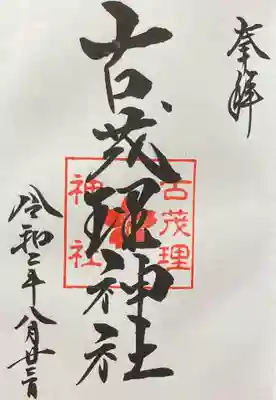 奉拝
古茂理神社
古茂理
神社
令和二年八月廿三日